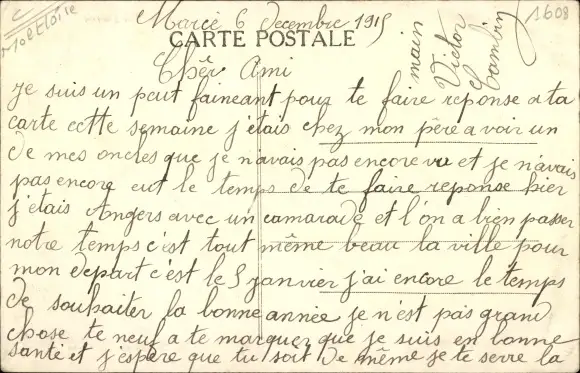 Marcé 6 Decembre 1915
CARTE POSTALE
1608
Chèr Ami
Je suis un peut faineant pour te faire reponse a ta
carte cette semaine j'etais chez mon père a voir un
de mes oncles que je n'avais pas encore vu et je n'avais
pas encore eut le temps de te faire reponse hier
j'etais Angers avec un camarade et l'on a bien passer
notre temps c'est tout même beau la ville pour
mon depart c'est le 5 janvier j'ai encore le temps
de souhaiter la bonne année je n'est pas grand
chose te neuf a te marquer que je suis en bonne
santé et j'espère que tu soit de même je te serre la
main
Victor